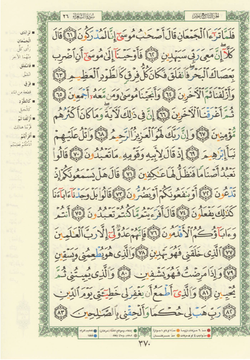 فَلَمَّا تَرَٰٓءَا ٱلْجَمْعَانِ قَالَ أَصْحَٰبُ مُوسَىٰٓ إِنَّا لَمُدْرَكُونَ ٦١ قَالَ
كَلَّآ إِنَّ مَعِىَ رَبِّى سَيَهْدِينِ ٦٢ فَأَوْحَيْنَآ إِلَىٰ مُوسَىٰٓ أَنِ ٱضْرِب
بِّعَصَاكَ ٱلْبَحْرَ فَٱنفَلَقَ فَكَانَ كُلُّ فِرْقٍ كَٱلطَّوْدِ ٱلْعَظِيمِ ٦٣
وَأَزْلَفْنَا ثَمَّ ٱلْءَاخَرِينَ ٦٤ وَأَنجَيْنَا مُوسَىٰ وَمَن مَّعَهُۥٓ أَجْمَعِينَ ٦٥
ثُمَّ أَغْرَقْنَا ٱلْءَاخَرِينَ ٦٦ إِنَّ فِى ذَٰلِكَ لَءَايَةً وَمَا كَانَ أَكْثَرُهُم
مُّؤْمِنِينَ ٦٧ وَإِنَّ رَبَّكَ لَهُوَ ٱلْعَزِيزُ ٱلرَّحِيمُ ٦٨ وَٱتْلُ عَلَيْهِمْ
نَبَأَ إِبْرَٰهِيمَ ٦٩ إِذْ قَالَ لِأَبِيهِ وَقَوْمِهِۦ مَا تَعْبُدُونَ ٧٠ قَالُوا۟
نَعْبُدُ أَصْنَامًا فَنَظَلُّ لَهَا عَٰكِفِينَ ٧١ قَالَ هَلْ يَسْمَعُونَكُمْ إِذْ
تَدْعُونَ ٧٢ أَوْ يَنفَعُونَكُمْ أَوْ يَضُرُّونَ ٧٣ قَالُوا۟ بَلْ وَجَدْنَآ ءَابَآءَنَا
كَذَٰلِكَ يَفْعَلُونَ ٧٤ قَالَ أَفَرَءَيْتُم مَّا كُنتُمْ تَعْبُدُونَ ٧٥ أَنتُمْ
وَءَابَآؤُكُمُ ٱلْأَقْدَمُونَ ٧٦ فَإِنَّهُمْ عَدُوٌّ لِّىٓ إِلَّا رَبَّ ٱلْعَٰلَمِينَ ٧٧
ٱلَّذِى خَلَقَنِى فَهُوَ يَهْدِينِ ٧٨ وَٱلَّذِى هُوَ يُطْعِمُنِى وَيَسْقِينِ
٧٩ وَإِذَا مَرِضْتُ فَهُوَ يَشْفِينِ ٨٠ وَٱلَّذِى يُمِيتُنِى ثُمَّ
يُحْيِينِ ٨١ وَٱلَّذِىٓ أَطْمَعُ أَن يَغْفِرَ لِى خَطِيٓـَٔتِى يَوْمَ ٱلدِّينِ
٨٢ رَبِّ هَبْ لِى حُكْمًا وَأَلْحِقْنِى بِٱلصَّٰلِحِينَ ٨٣
٣٧٠